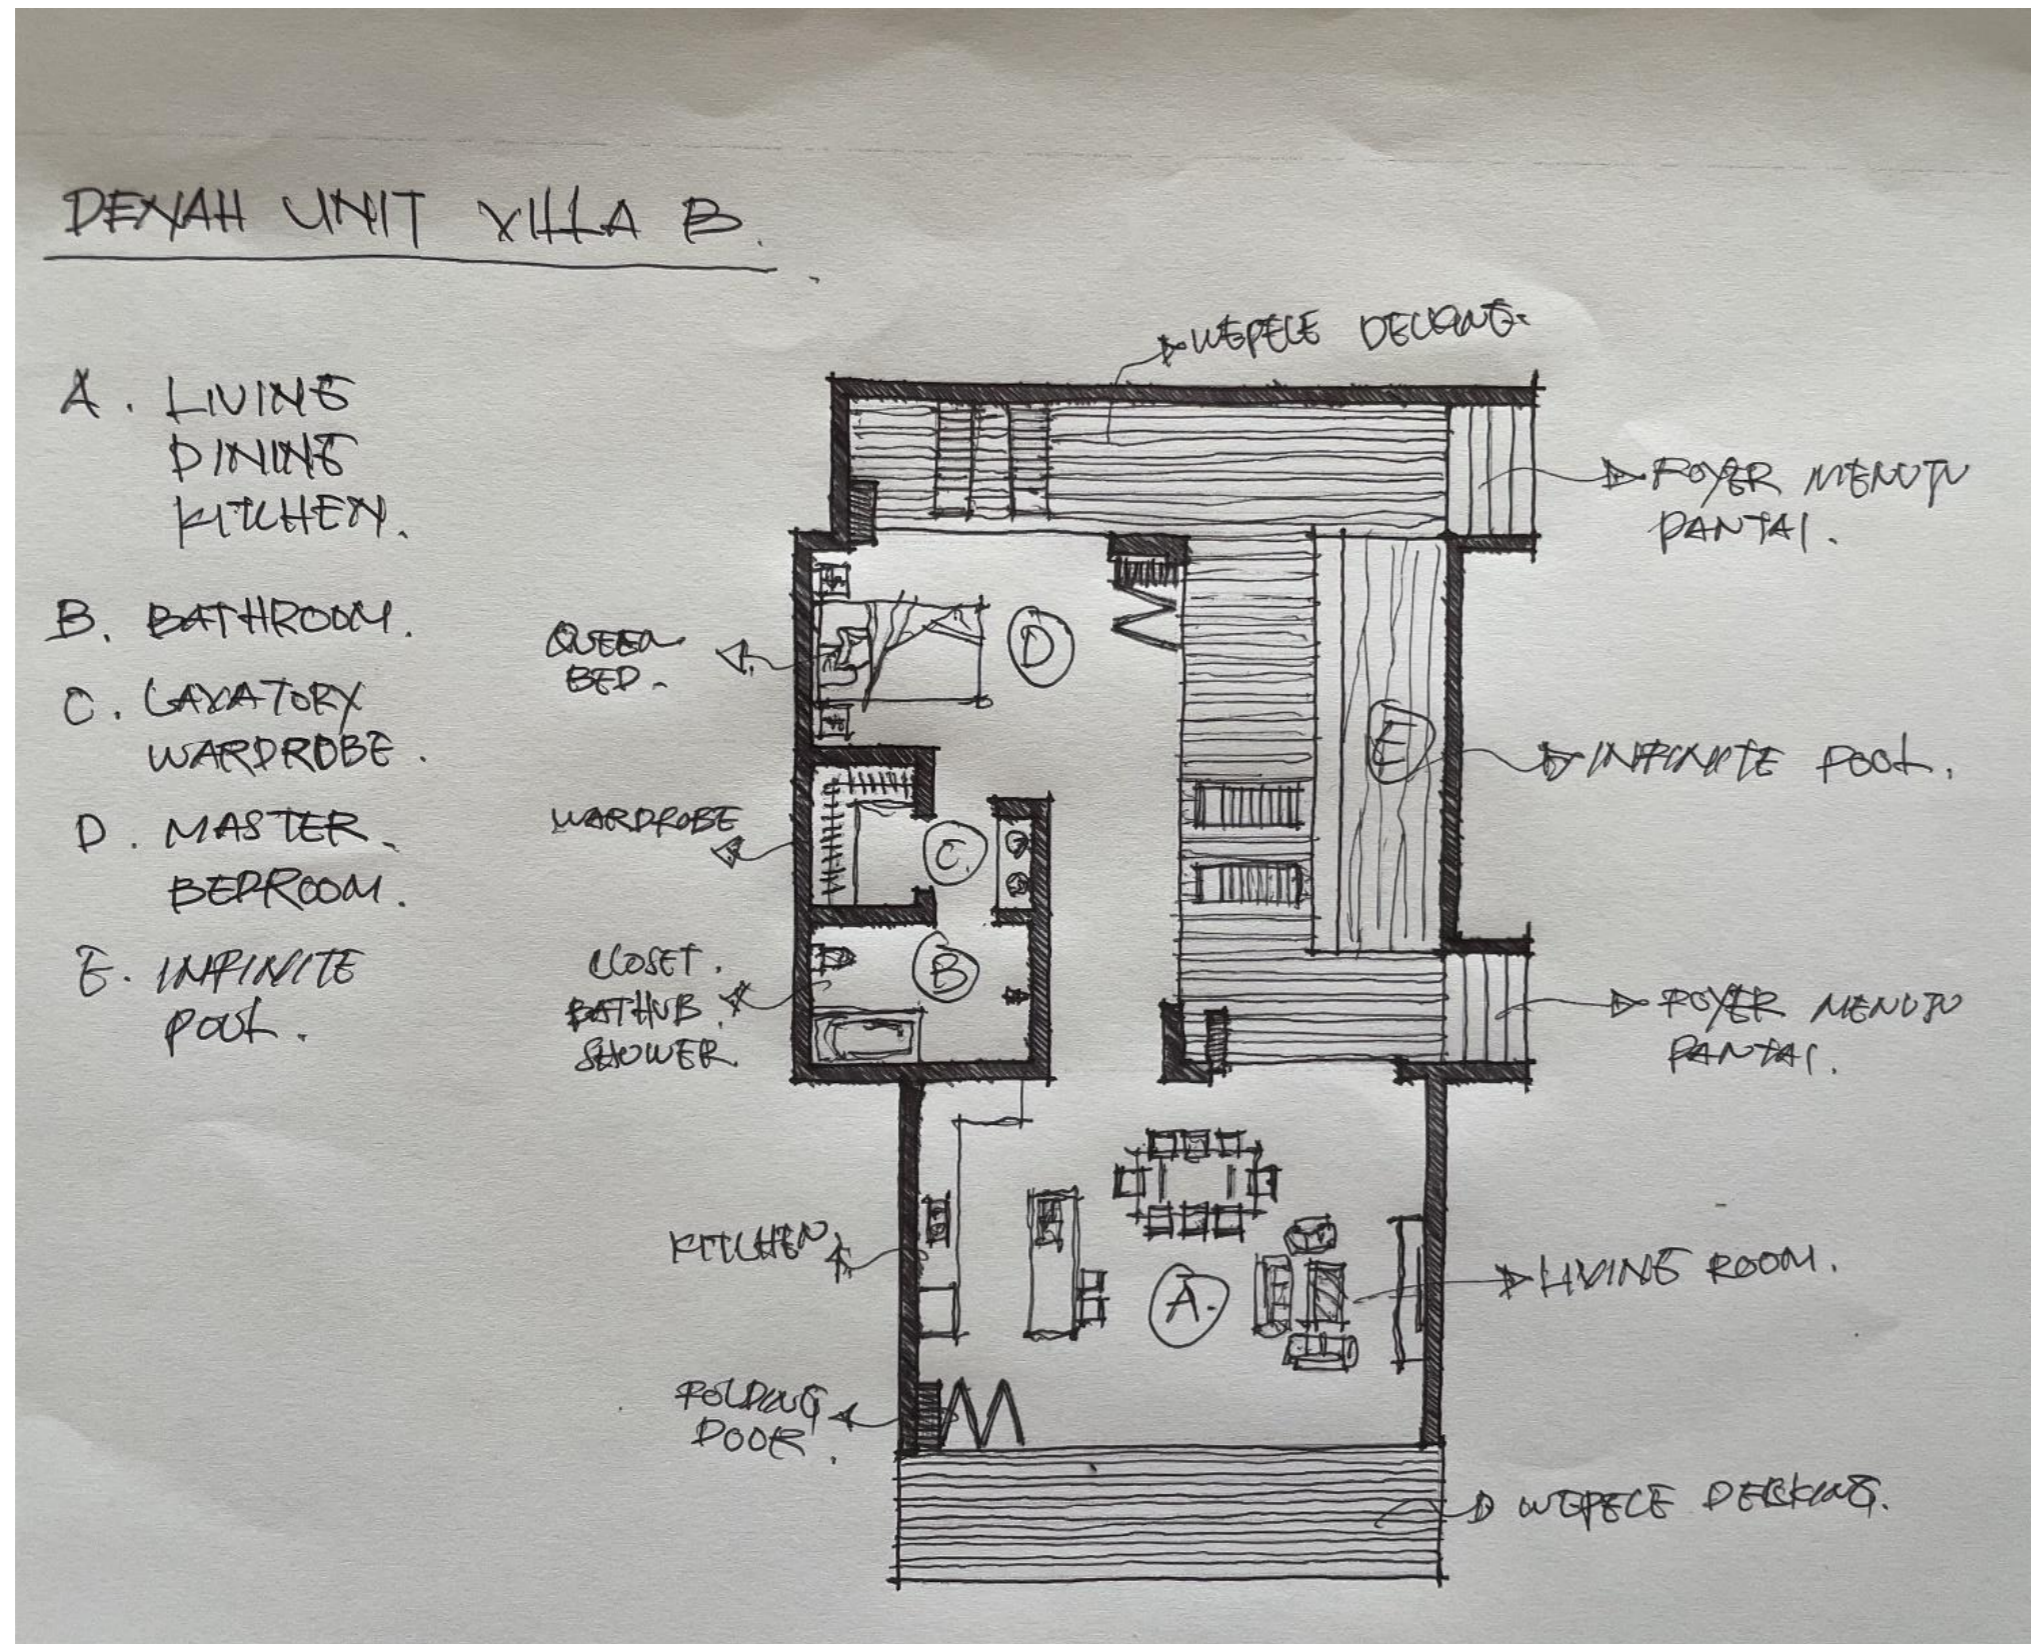 DENAH UNIT VILLA B.
A. LIVING
DINING
KITCHEN.
B. BATHROOM.
C. LAVATORY
WARDROBE.
D. MASTER
BEDROOM.
E. INFINITE
POOL.
WEPECE DECKING.
FOYER MENUJU
PANTAI.
QUEEN
BED.
D
E
INFINITE POOL.
WARDROBE
C.
CLOSET.
BATHUB.
SHOWER.
B
FOYER MENUJU
PANTAI.
KITCHEN
A.
LIVING ROOM.
FOLDING
DOOR.
WEPECE DECKING.